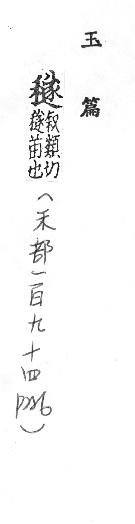 玉篇
穟 叙類切穟苗也(禾部一百九十四